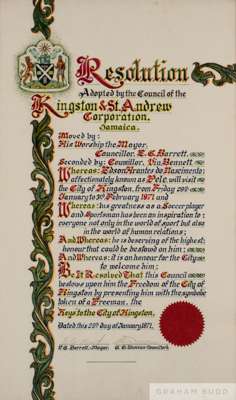 Resolution
Adopted by the Council of the
Kingston & St. Andrew
Corporation,
Jamaica.
Moved by:
His Worship the Mayor,
Councillor, E. G. Barrett.
Seconded by: Councillor, Vin. Bennett
Whereas: Edson Arantes do Nascimento;
affectionately known as Pele, will visit
the City of Kingston, from Friday 29th
January to 30th February 1971 and
Whereas: his greatness as a Soccer player
and Sportsman has been an inspiration to
everyone not only in the world of sport but also
in the world of human relations;
And Whereas: he is deserving of the highest
honour that could be bestowed on him; and
And Whereas: it is an honour for the City
to welcome him;
Be It Resolved That this Council
bestows upon him the Freedom of the City of
Kingston by presenting him with the symbolic
token of a Freeman, the
Keys to the City of Kingston.
Dated this 29th day of January 1971.
Barrett, Mayor.
GRAHAM BUDD